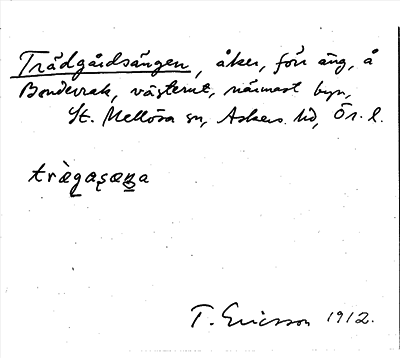 Trädgårdsängen, åker, förr äng, å
Bondevrak, västerut, närmast byn,
St. Mellösa sn, Askers hd, Ör. l.
trägasæna
T. Ericsson 1912.